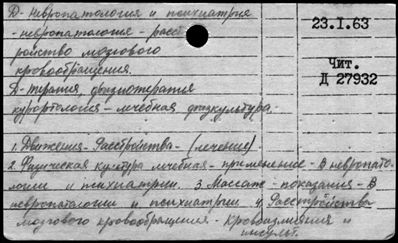 Д- невропатология и психиатрия
- невропатология - расст
ройство мозгового
кровообращения.
Д- терапия, физиотерапия
курортология - лечебная физкультура.
23.I.63
Чит.
Д 27932
1. Движения - Расстройства - (лечение)
2. Физическая культура лечебная - применение - В невропато-
логии и психиатрии. 3. Массаж - показания - В
невропатологии и психиатрии 4. Расстройства
мозгового кровообращения - Кровоизлияния и
инсульт.